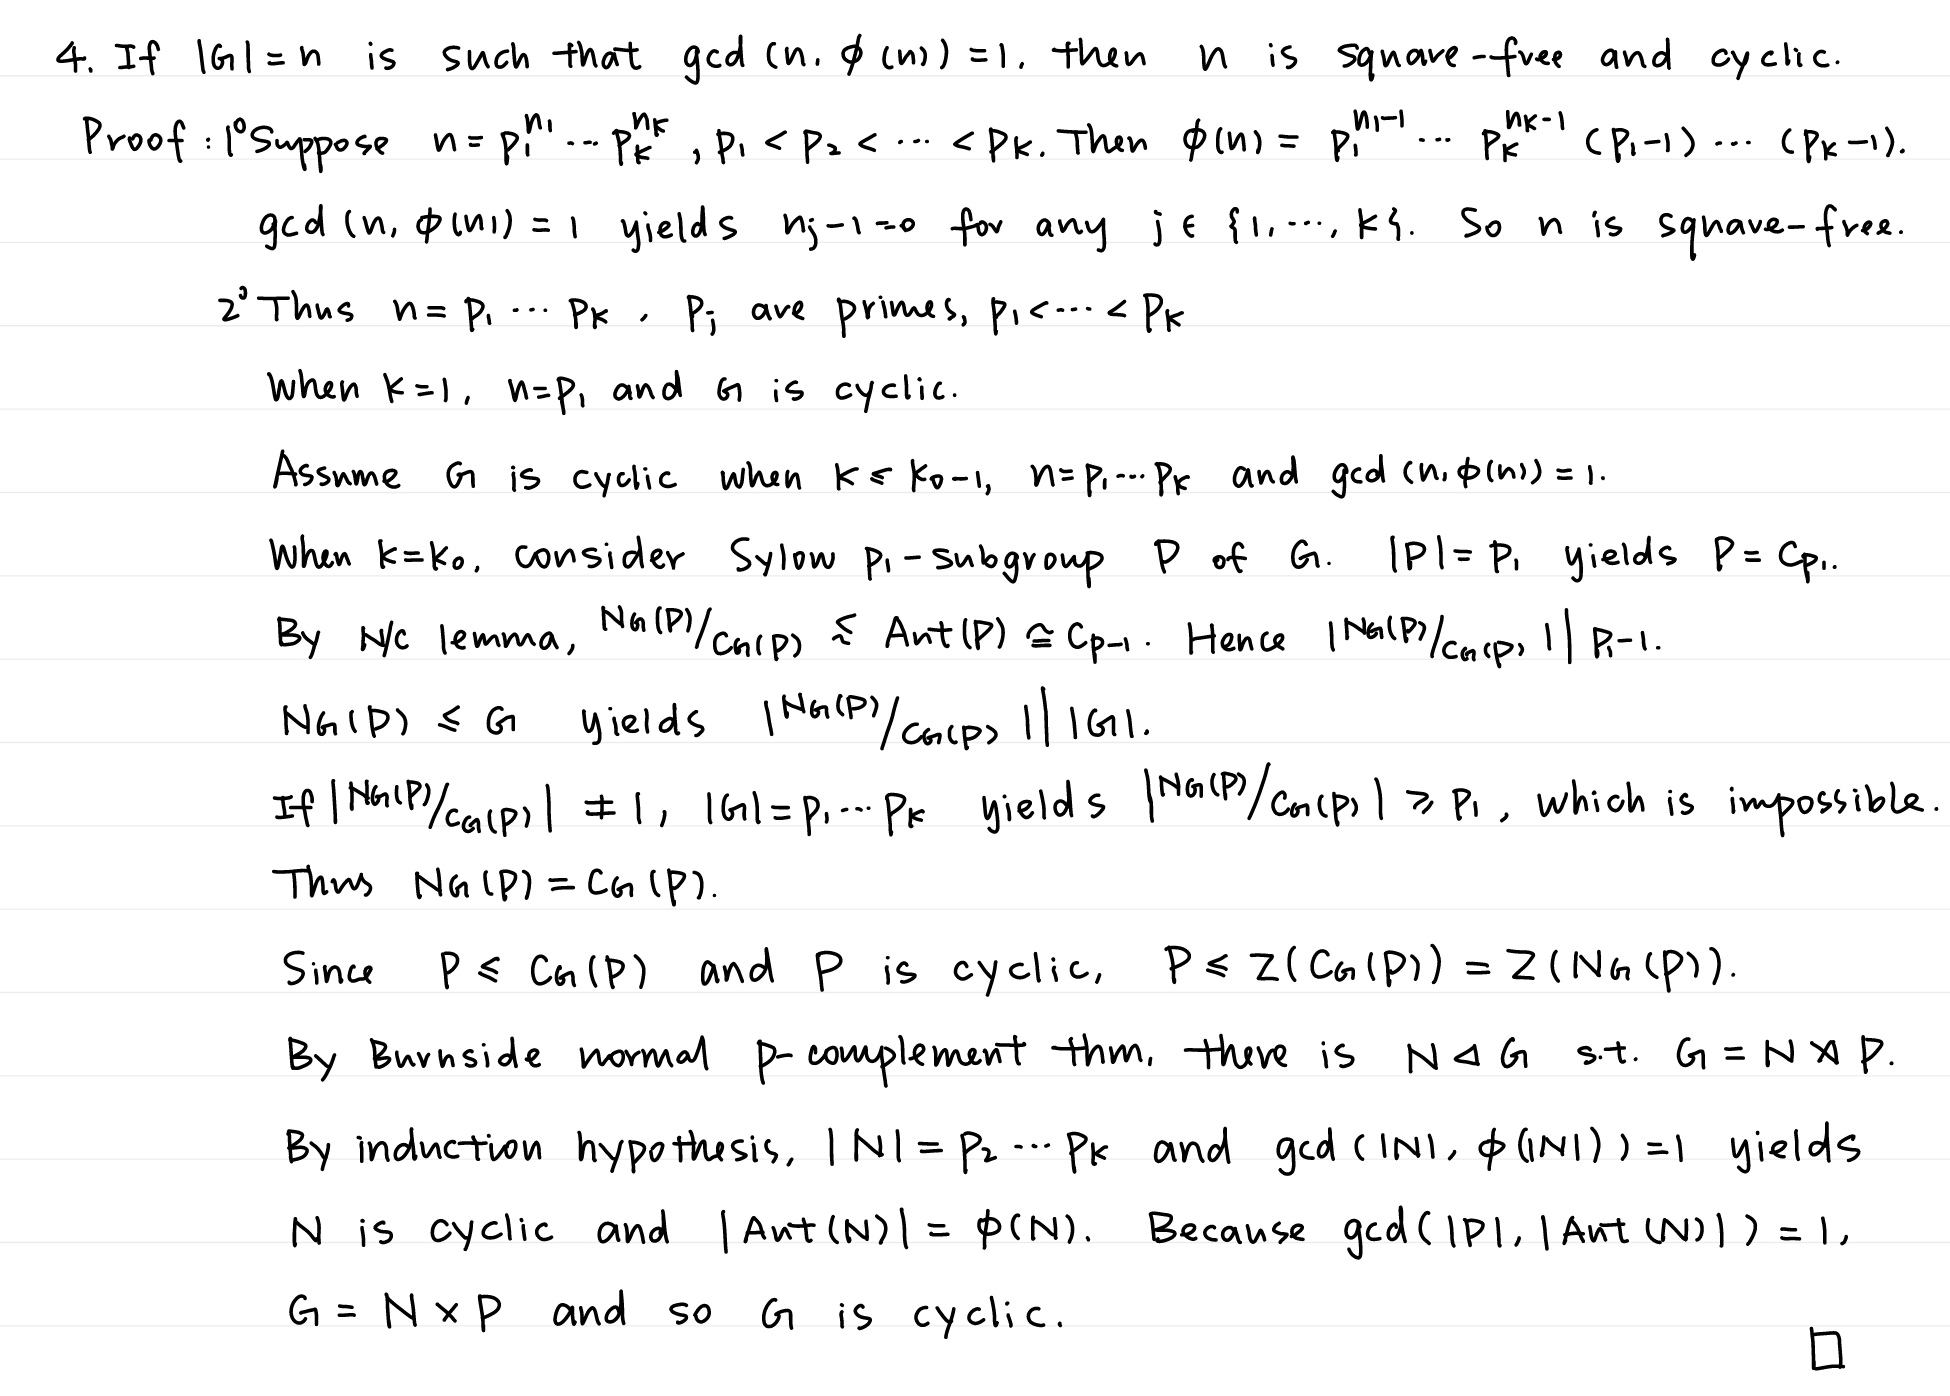 4. If |G| = n is such that gcd (n, φ(n)) = 1, then n is square-free and cyclic.
Proof: 1° Suppose n = p₁^{n₁} ... p_k^{n_k}, p₁ < p₂ < ... < p_k. Then φ(n) = p₁^{n₁-1} ... p_k^{n_k-1} (p₁-1) ... (p_k-1).
gcd (n, φ(n)) = 1 yields n_j-1=0 for any j ∈ {1, ..., k}. So n is square-free.
2° Thus n = p₁ ... p_k, p_j are primes, p₁ < ... < p_k
When k=1, n=p₁ and G is cyclic.
Assume G is cyclic when k ≤ k₀-1, n=p₁...p_k and gcd (n, φ(n)) = 1.
When k=k₀, consider Sylow p₁-subgroup P of G. |P| = p₁ yields P = C_{p₁}.
By N/C lemma, N_G(P)/C_G(P) ≲ Aut(P) ≅ C_{p-1}. Hence |N_G(P)/C_G(P)| | p₁-1.
N_G(P) ≤ G yields |N_G(P)/C_G(P)| | |G|.
If |N_G(P)/C_G(P)| ≠ 1, |G| = p₁...p_k yields |N_G(P)/C_G(P)| ≥ p₁, which is impossible.
Thus N_G(P) = C_G(P).
Since P ≤ C_G(P) and P is cyclic, P ≤ Z(C_G(P)) = Z(N_G(P)).
By Burnside normal p-complement thm, there is N ⊲ G s.t. G = N ⋊ P.
By induction hypothesis, |N| = p₂ ... p_k and gcd (|N|, φ(|N|)) = 1 yields
N is cyclic and |Aut(N)| = φ(N). Because gcd(|P|, |Aut(N)|) = 1,
G = N × P and so G is cyclic.
□